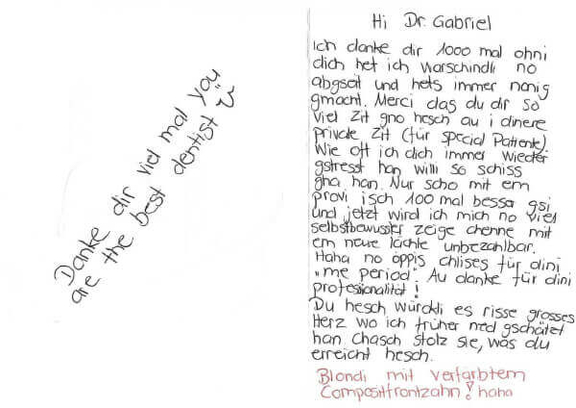 Danke dir viel mal you
are the best dentist
Hi Dr. Gabriel
Ich danke dir 1000 mal ohni
dich het ich warschindli no
abgseit und hets immer nonig
gmacht. Merci das du dir so
viel Zit gno hesch au i dinere
private Zit (für special Patiente)
Wie oft ich dich immer wieder
gstresst han willi so schiss
gha han. Nur scho mit em
provi isch 100 mal besser gsi
und jetzt wird ich mich no viel
selbstbewusster zeige chenne mit
em neue lächle unbezahlbar.
Haha no öppis chlises für dini
"me period". Au danke für dini
professionalität!
Du hesch würkli es risse grosses
Herz wo ich früher ned gschätzt
han. Chasch stolz sie, was du
erreicht hesch.
Blondi mit verfärbtem
Compositfrontzahn! haha